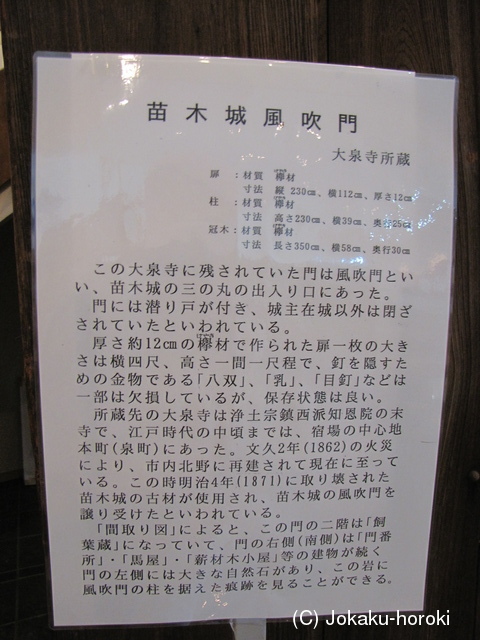 苗木城風吹門
大泉寺所蔵
扉 :材質 欅材
寸法 縦 230㎝、横112㎝、厚さ12㎝
柱 :材質 欅材
寸法 高さ230㎝、横39㎝、奥行25㎝
冠木:材質 欅材
寸法 長さ350㎝、横58㎝、奥行30㎝
この大泉寺に残されていた門は風吹門とい
い、苗木城の三の丸の出入り口にあった。
門には潜り戸が付き、城主在城以外は閉ざ
されていたといわれている。
厚さ約12㎝の欅材で作られた扉一枚の大き
さは横四尺、高さ一間一尺程で、釘を隠すた
めの金物である「八双」、「乳」、「目釘」などは
一部は欠損しているが、保存状態は良い。
所蔵先の大泉寺は浄土宗鎮西派知恩院の末
寺で、江戸時代の中頃までは、宿場の中心地
本町(泉町)にあった。文久2年(1862)の火災
により、市内北野に再建されて現在に至って
いる。この時明治4年(1871)に取り壊された
苗木城の古材が使用され、苗木城の風吹門を
譲り受けたといわれている。
「間取り図」によると、この門の二階は「飼
葉蔵」になっていて、門の右側(南側)は「門番
所」・「馬屋」・「薪材木小屋」等の建物が続く
門の左側には大きな自然石があり、この岩に
風吹門の柱を据えた痕跡を見ることができる。
(C) Jokaku-horoki